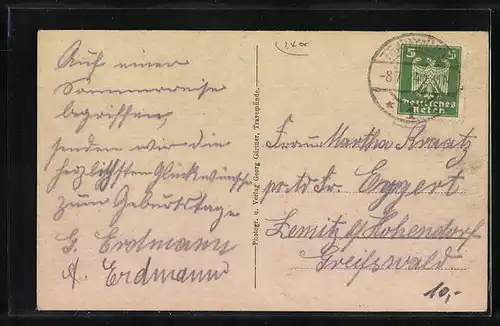 Auf einer
Sommerreise
begriffen,
senden wir die
herzlichsten Glückwünsche
zum Geburtstage
G. Erdtmann
A. Erdmann
Photogr. u. Verlag Georg Gärtner, Travemünde.
5 5
Deutsches
Reich
-8.
Frau Martha Kraatz
Fr. Eggert
Lemitz b/ Hohendorf
Greifswald
10,-